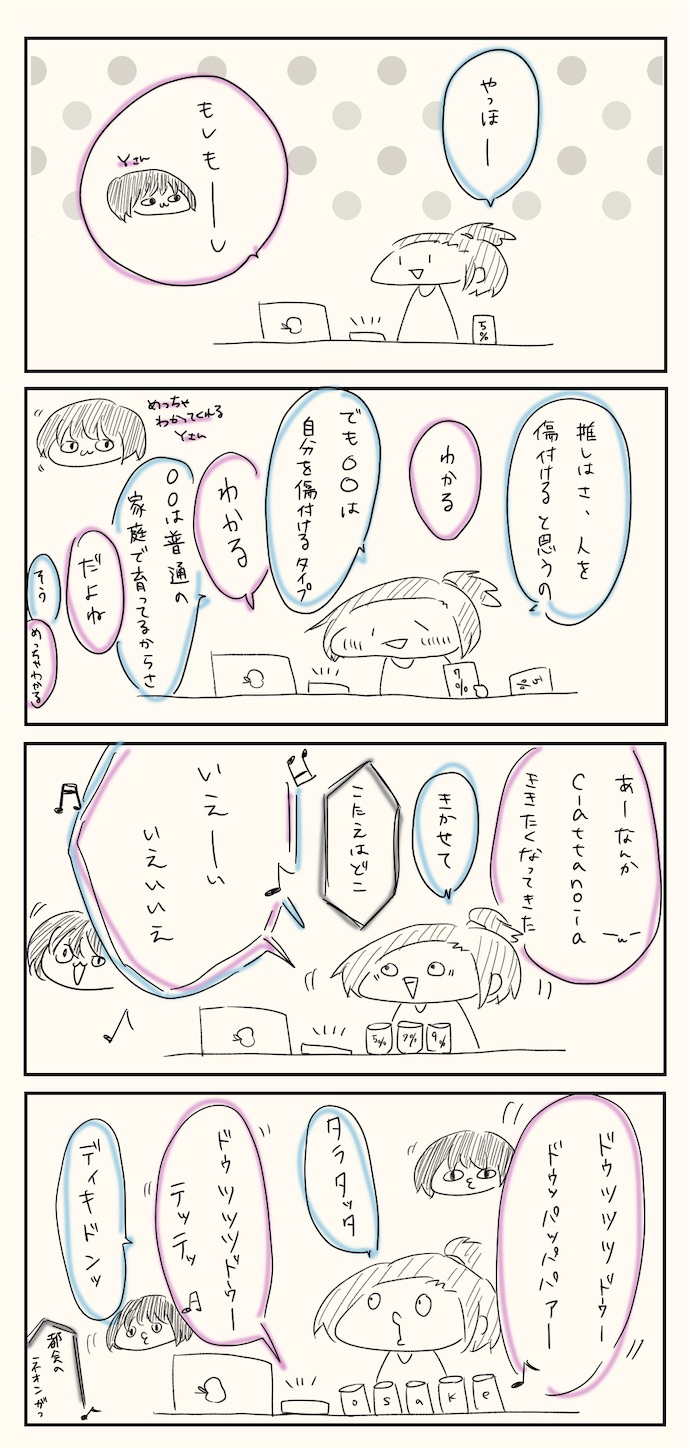 やっほー
もしもーーし
Yさん
5%
推しはさ、人を
傷付けると思うの
わかる
でも〇〇は
自分を傷付けるタイプ
わかる
〇〇は普通の
家庭で育ってるからさ
だよね
そう
めっちゃわかる
めっちゃ
わかってくれる
Yさん
7%
5%
あーなんか
C-attanoia
ききたくなってきた
きかせて
こたえはどこ
いえーい
いえいいえ
5%
7%
9%
ドゥツツツドゥー
ドゥッパッパパアー
タラタッタ
ドゥツツツドゥー
テッテッ
ディキドンッ
都会の
ネオンがっ
osake